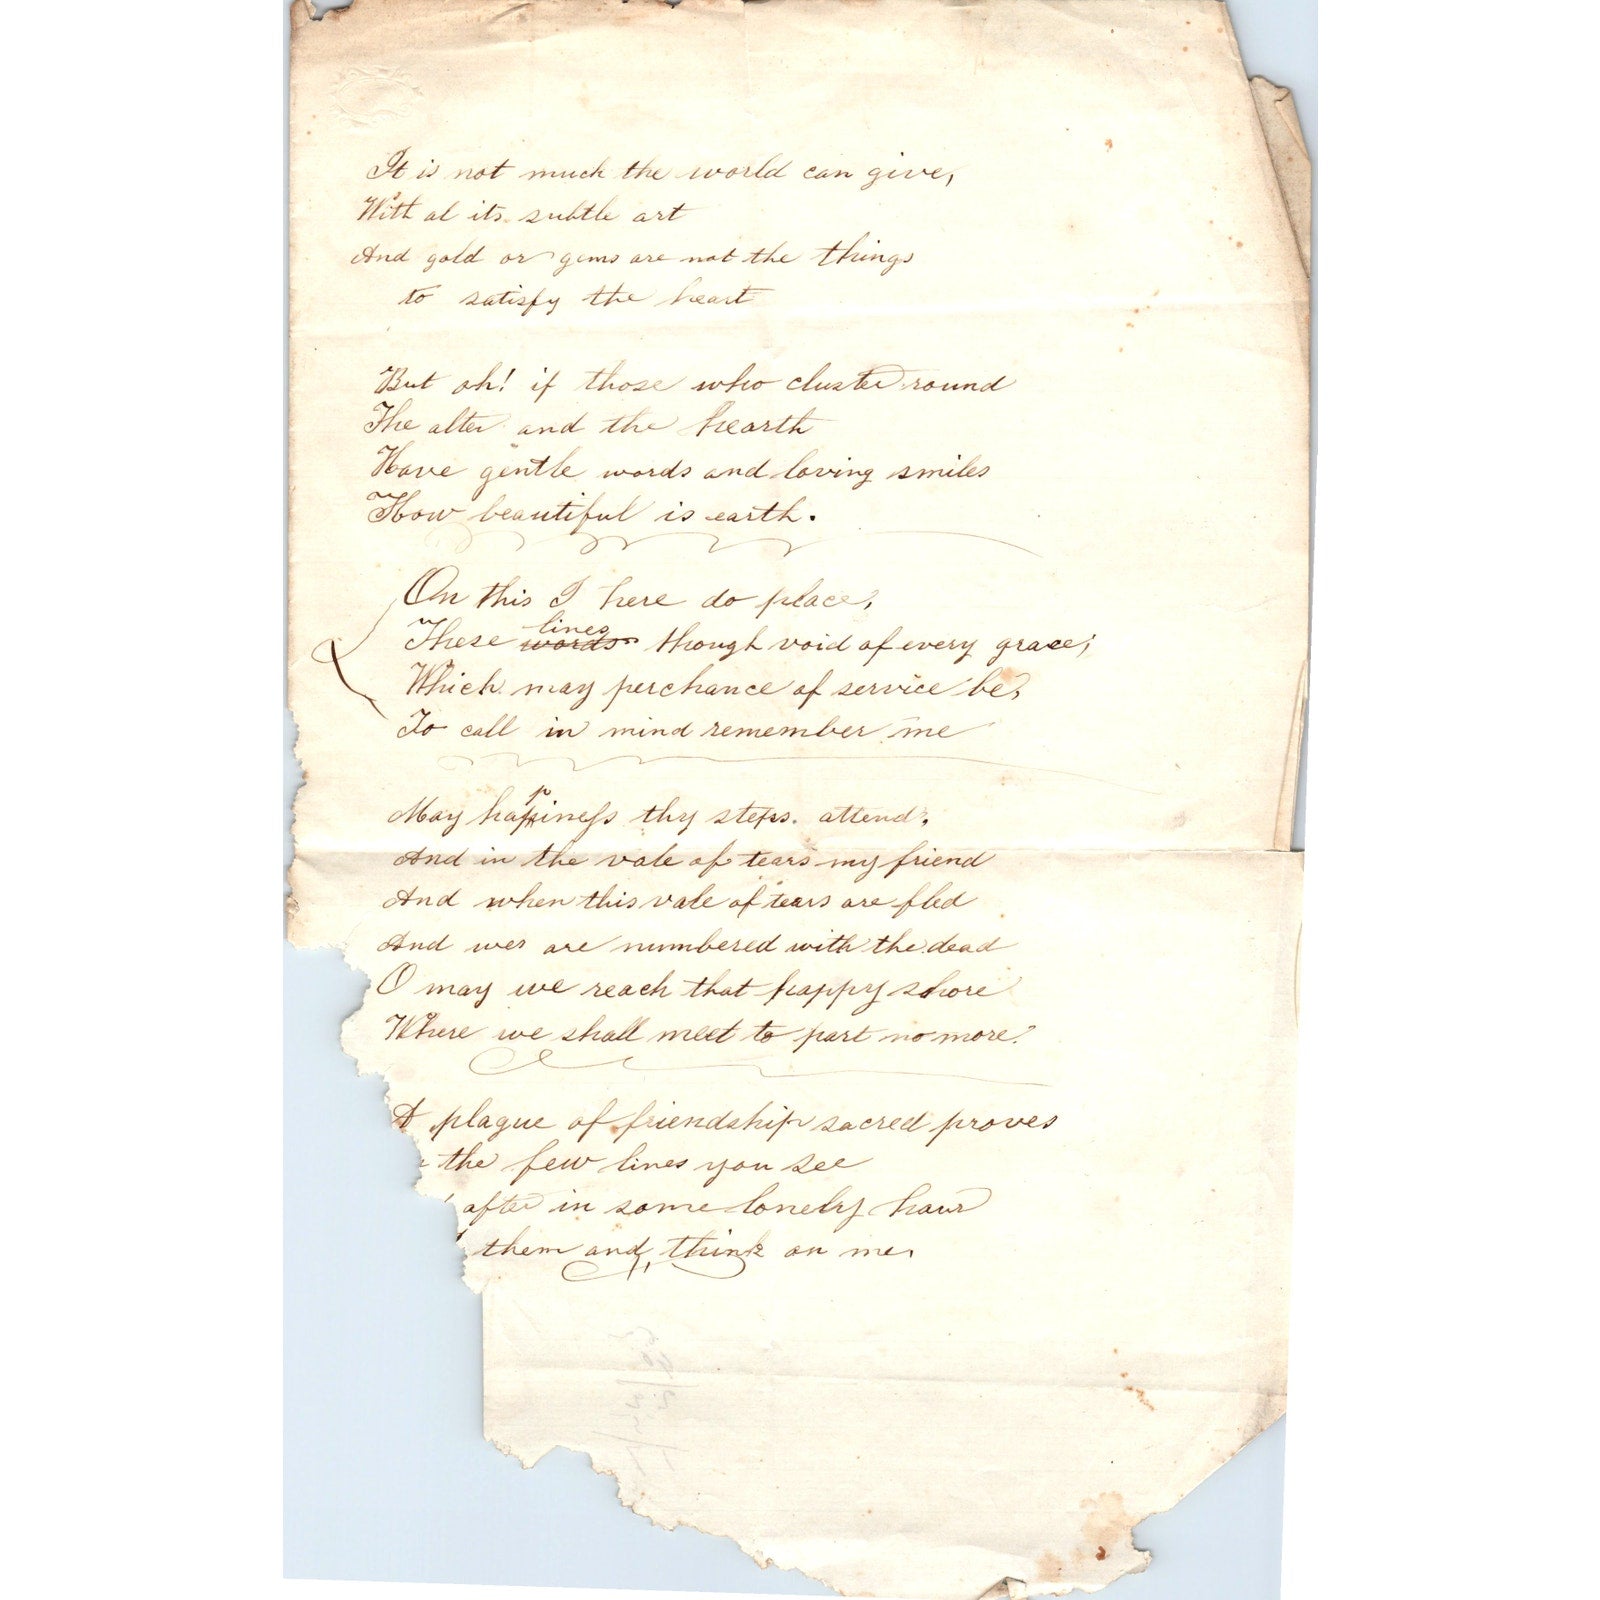 It is not much the world can give,
With al its subtle art
And gold or gems are not the things
to satisfy the heart
But oh! if those who cluster round
The alter and the hearth
Have gentle words and loving smiles
How beautiful is earth.
On this I here do place,
lines
These words though void of every grace;
Which may perchance of service be,
To call in mind remember me
May happiness thy steps attend,
And in the vale of tears my friend
And when this vale of tears are fled
And wer are numbered with the dead
O may we reach that happy shore
Where we shall meet to part no more.
A plague of friendship sacred proves
the few lines you see
after in some lonely hour
them and think on me.